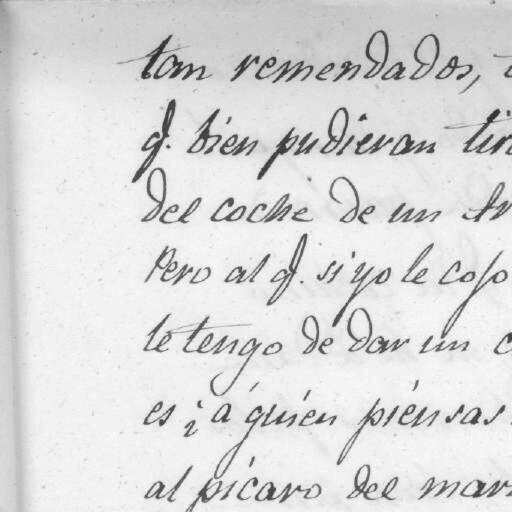 tan remendados,
q. bien pudieran
del coche de un
Pero al q. si yo le cojo
le tengo de dar un
es ¿a quien piensas
al picaro del